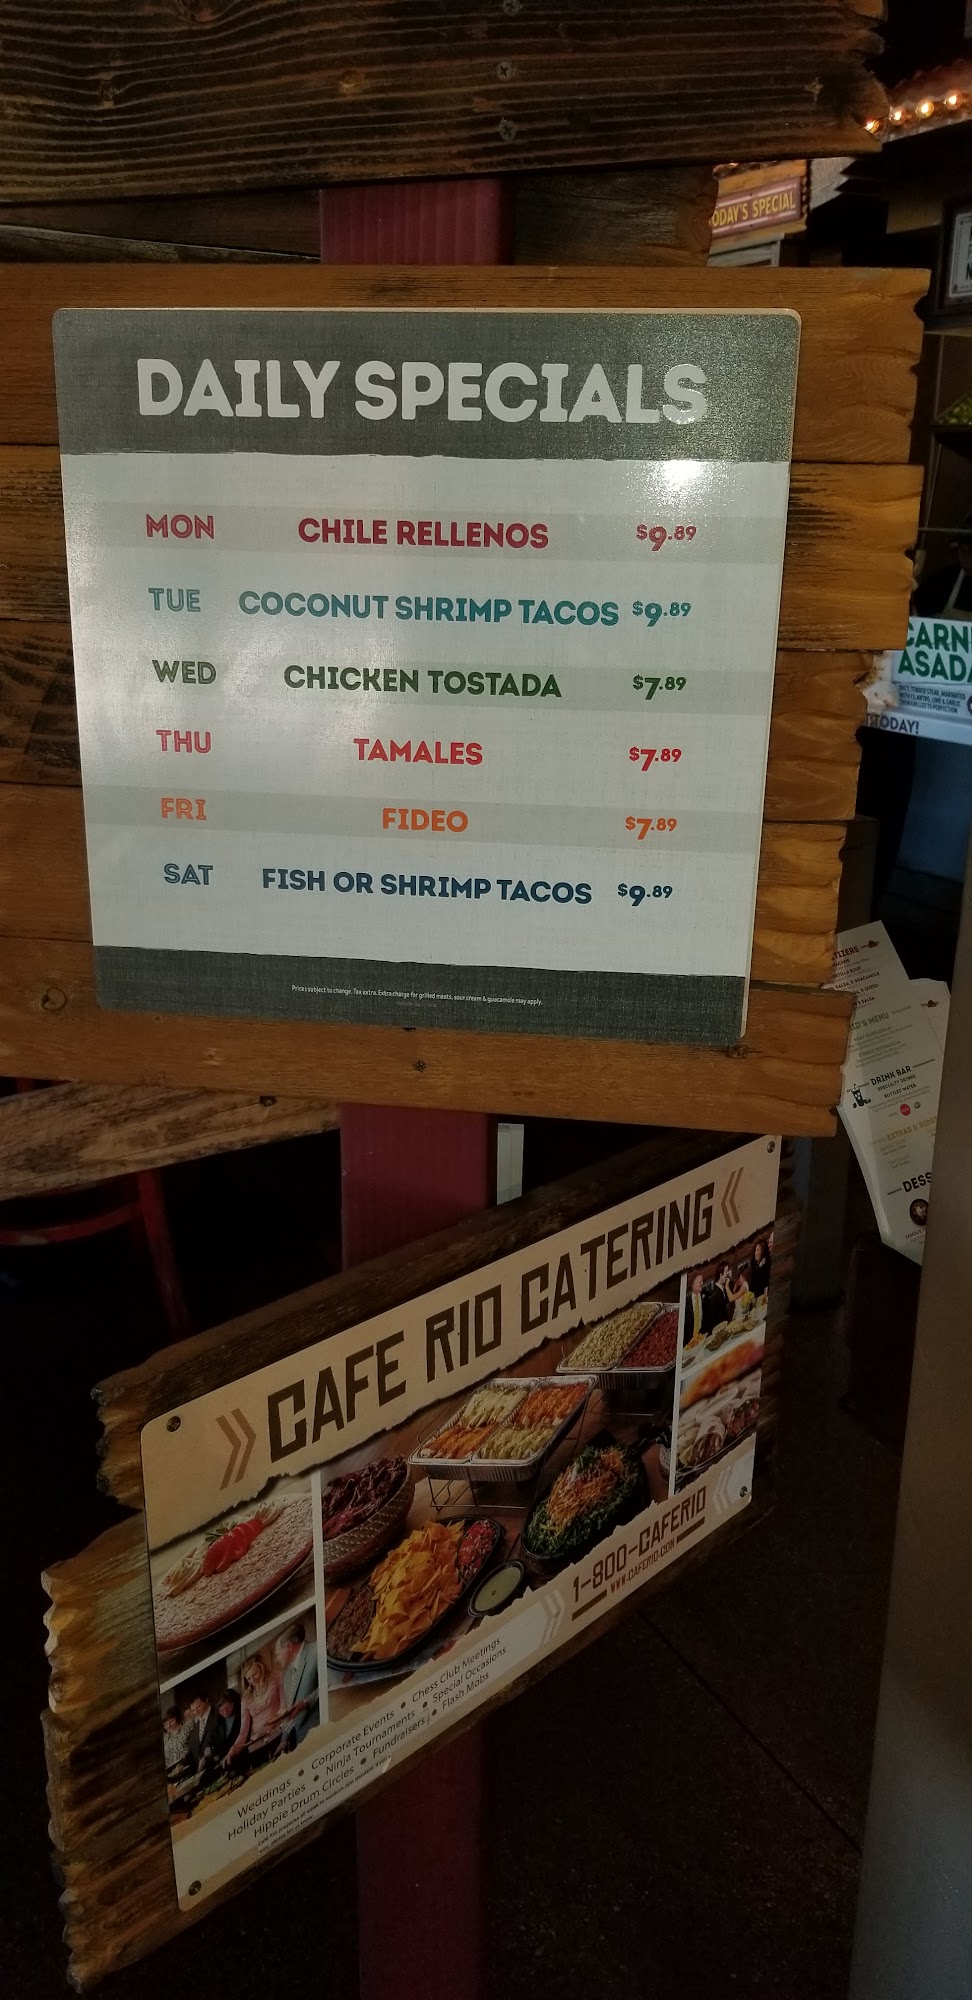 ODAY'S SPECIAL
DAILY SPECIALS
MON CHILE RELLENOS $9.89
TUE COCONUT SHRIMP TACOS $9.89
WED CHICKEN TOSTADA $7.89
THU TAMALES $7.89
FRI FIDEO $7.89
SAT FISH OR SHRIMP TACOS $9.89
Prices subject to change. Tax extra. Extra charge for grilled meats, sour cream & guacamole may apply.
CARN
ASADA
TODAY!
TIZERS
D'S MENU
DRINK BAR
SPECIALTY DRINKS
BOTTLED WATER
EXTRAS & SIDE
DESS
CAFE RIO CATERING
1-800-CAFERIO
WWW.CAFERIO.COM
Weddings • Corporate Events • Chess Club Meetings
Holiday Parties • Ninja Tournaments • Special Occasions
Hippie Drum Circles • Fundraisers • Flash Mobs